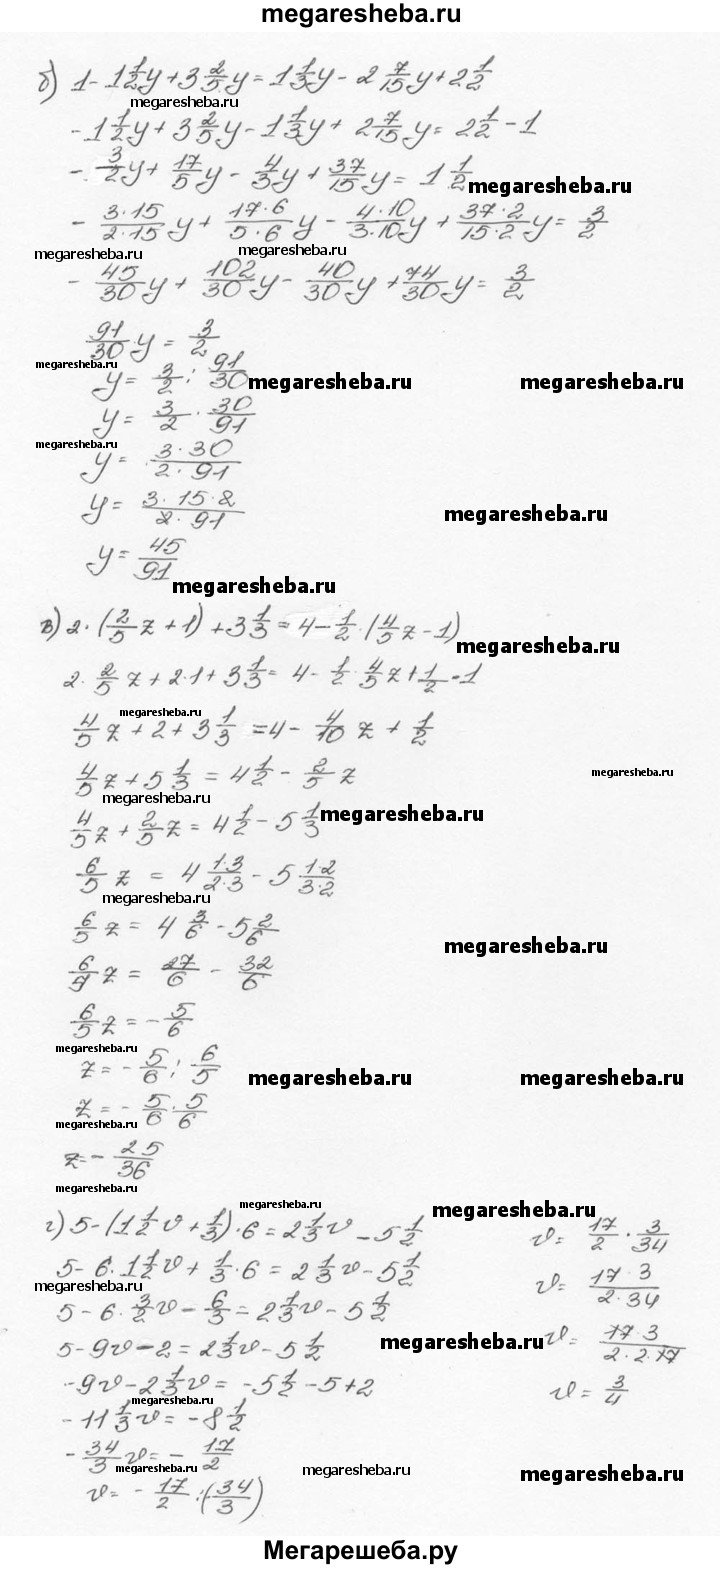 megaresheba.ru
б) 1 - 1 1/2 y + 3 2/5 y = 1 1/3 y - 2 7/15 y + 2 1/2
megaresheba.ru
- 1 1/2 y + 3 2/5 y - 1 1/3 y + 2 7/15 y = 2 1/2 - 1
- 3/2 y + 17/5 y - 4/3 y + 37/15 y = 1 1/2
megaresheba.ru
- 3·15/2·15 y + 17·6/5·6 y - 4·10/3·10 y + 37·2/15·2 y = 3/2
megaresheba.ru megaresheba.ru
- 45/30 y + 102/30 y - 40/30 y + 74/30 y = 3/2
91/30 · y = 3/2
megaresheba.ru
y = 3/2 : 91/30
megaresheba.ru megaresheba.ru
y = 3/2 · 30/91
megaresheba.ru
y = 3·30/2·91
y = 3·15·2/2·91
megaresheba.ru
y = 45/91
megaresheba.ru
в) 2·(2/5 z + 1) + 3 1/3 = 4 - 1/2·(4/5 z - 1)
megaresheba.ru
2· 2/5 z + 2·1 + 3 1/3 = 4 - 1/2 · 4/5 z + 1/2 · 1
megaresheba.ru
4/5 z + 2 + 3 1/3 = 4 - 4/10 z + 1/2
4/5 z + 5 1/3 = 4 1/2 - 2/5 z
megaresheba.ru
megaresheba.ru
4/5 z + 2/5 z = 4 1/2 - 5 1/3
megaresheba.ru
6/5 z = 4 1·3/2·3 - 5 1·2/3·2
megaresheba.ru
6/5 z = 4 3/6 - 5 2/6
megaresheba.ru
6/5 z = 27/6 - 32/6
6/5 z = - 5/6
megaresheba.ru
z = - 5/6 : 6/5
megaresheba.ru megaresheba.ru
z = - 5/6 · 5/6
megaresheba.ru
z = - 25/36
megaresheba.ru
megaresheba.ru
г) 5 - (1 1/2 v + 1/3)·6 = 2 1/3 v - 5 1/2
5 - 6·1 1/2 v + 1/3 ·6 = 2 1/3 v - 5 1/2
megaresheba.ru
5 - 6· 3/2 v - 6/3 = 2 1/3 v - 5 1/2
5 - 9v - 2 = 2 1/3 v - 5 1/2
megaresheba.ru
-9v - 2 1/3 v = -5 1/2 - 5 + 2
megaresheba.ru
- 11 1/3 v = - 8 1/2
- 34/3 v = - 17/2
megaresheba.ru megaresheba.ru megaresheba.ru
v = - 17/2 : (34/3)
v = 17/2 · 3/34
v = 17·3/2·34
v = 17·3/2·2·17
v = 3/4
Мегарешеба.ру